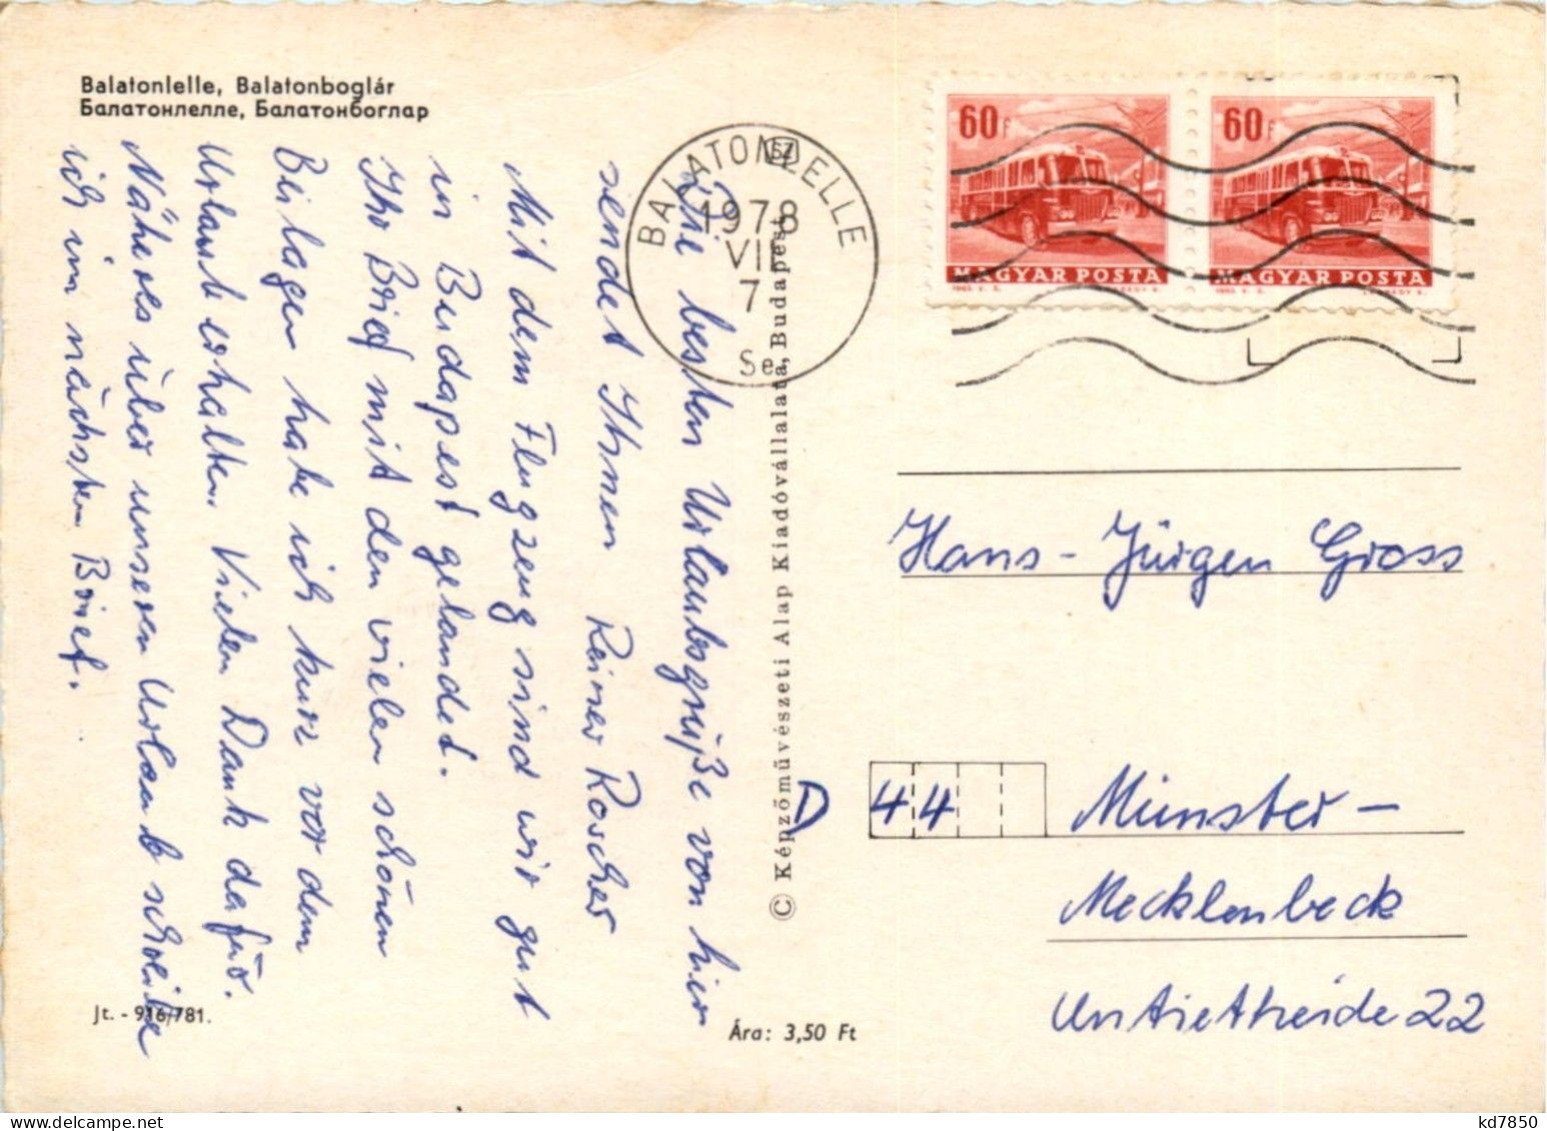 Balatonlelle, Balatonboglár
Балатонлелле, Балатонбоглар
Die besten Urlaubsgrüße von hier
sendet Ihnen Reiner Roscher
Mit dem Flugzeug sind wir gut
in Budapest gelandet.
Ihr Brief mit den vielen schönen
Beilagen habe ich kurz vor dem
Urlaub erhalten. Vielen Dank dafür.
Näheres über unseren Urlaub schreibe
ich im nächsten Brief.
Jt. - 916/781.
Ára: 3,50 Ft
© Képzőművészeti Alap Kiadóvállalata, Budapest
BALATONLELLE
1978
VII
7
Se
60f
MAGYAR POSTA
60f
MAGYAR POSTA
Hans-Jürgen Gross
D 44 Münster-
Mecklenbeck
22
kd7850